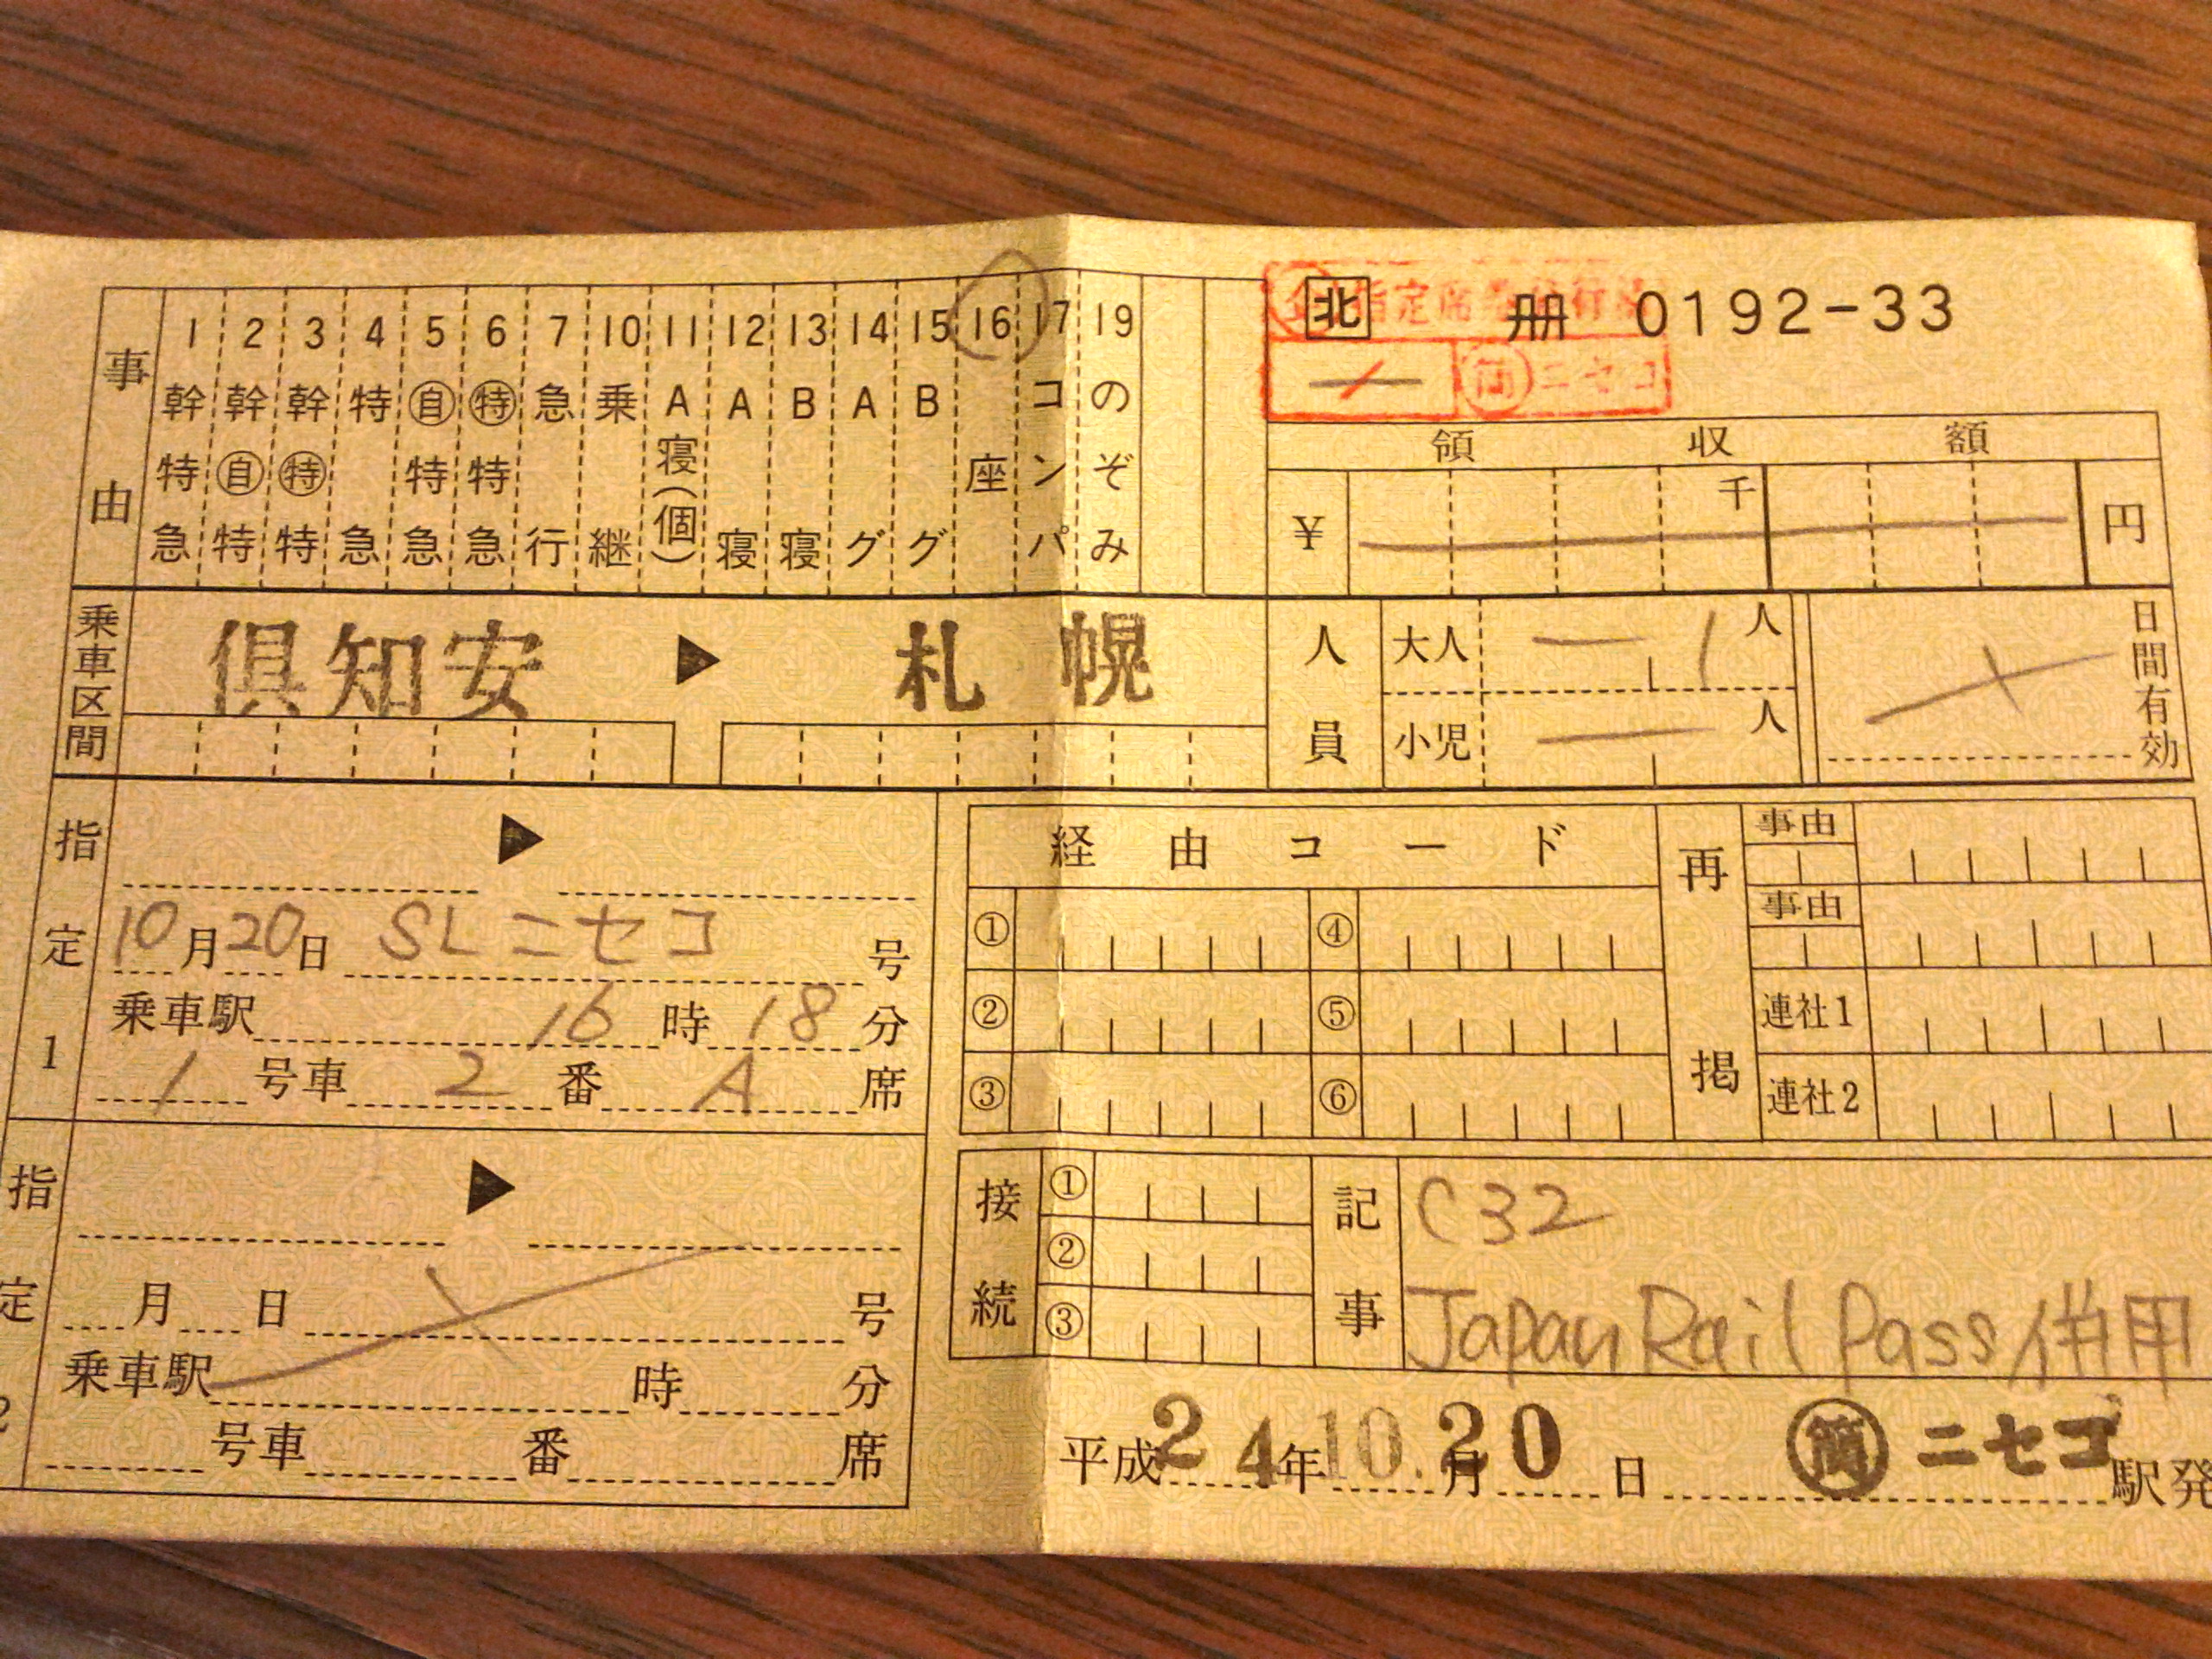 事由
1 幹特急
2 幹㊂自特
3 幹特特
4 特急
5 自特急
6 特特急
7 急行
10 乗継
11 A寝(個)
12 A寝
13 B寝
14 Aグ
15 Bグ
16 座
17 コンパ
19 のぞみ
北 冊 0192-33
指定席
簡 ニセコ
領収額
¥ 千 円
乗車区間
倶知安 ▶ 札幌
人員 大人 1 人
小児 人
日間有効
指定1
▶
10月20日 SLニセコ 号
乗車駅 16時18分
1号車 2番 A席
指定2
▶
月 日 号
乗車駅 時 分
号車 番 席
経由コード
① ④
② ⑤
③ ⑥
再掲
事由
事由
連社1
連社2
接続
①
②
③
記事
C32
Japan Rail Pass 併用
平成24年10.月20日 簡ニセコ駅発